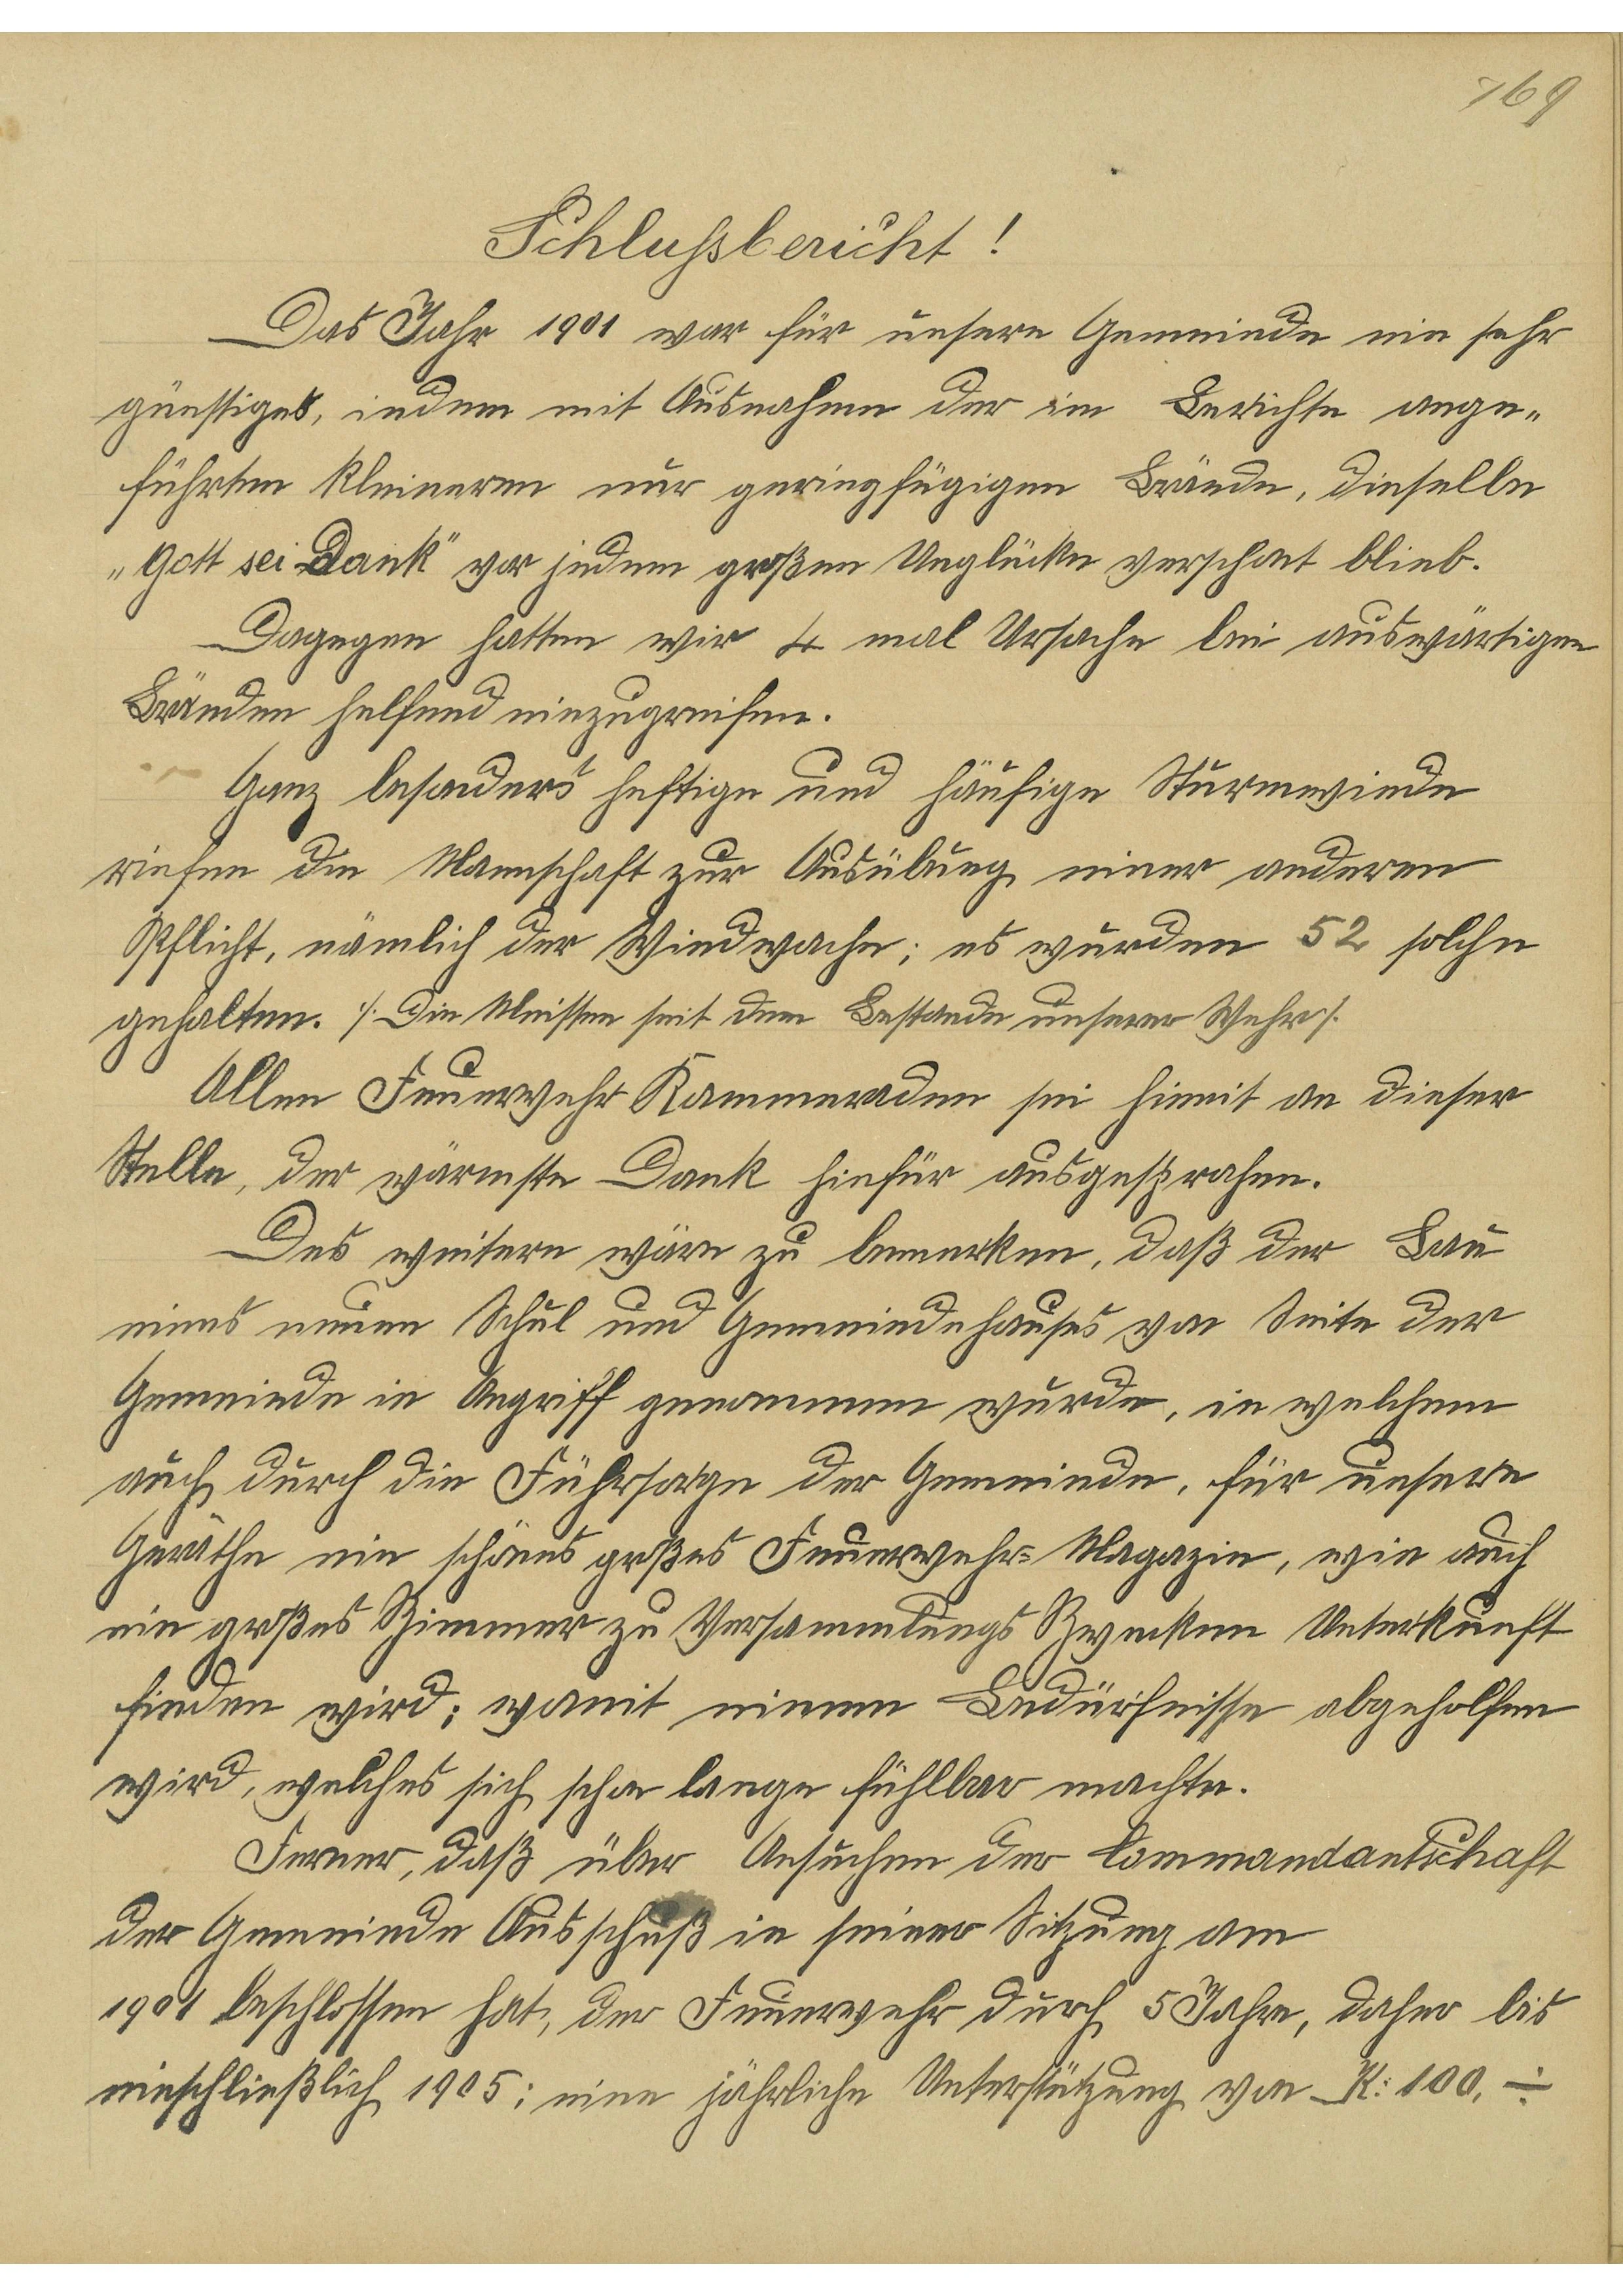 769
Schlußbericht!
Das Jahr 1901 war für unsere Gemeinde ein sehr
günstiges, indem mit Ausnahme der im Berichte ange-
führten kleineren nur geringfügigen Brände, dieselbe
„Gott sei Dank" vor jedem großen Unglücke verschont blieb.
Dagegen hatten wir 4 mal Ursache bei auswärtigen
Bränden helfend einzugreifen.
Ganz besonders heftige und häufige Sturmwinde
riefen die Mannschaft zur Ausübung einer anderen
Pflicht, nämlich der Windwache; es wurden 52 solche
gehalten. ⁒ Die Meisten seit dem Bestande unserer Wehr ⁒
Allen Feuerwehr Kammeraden sei hiemit an dieser
Stelle, der wärmste Dank hiefür ausgesprahen.
Des weitere wäre zu bemerken, daß der Bau
eines neuen Schul und Gemeindehauses von Seite der
Gemeinde in Angriff genommen wurde, in welchem
auch durch die Führsorge der Gemeinde, für unsere
Geräthe ein schönes großes Feuerwehr= Magazin, wie auch
ein großes Zimmer zu Versammlungs Zwecken Unterkunft
finden wird; womit einem Bedürfnisse abgeholfen
wird, welches sich schon lange fühlbar machte.
Ferner, daß über Ansuchen der Commandantschaft
der Gemeinde Ausschuß in seiner Sitzung am
1901 beschlossen hat, der Feuerwehr durch 5 Jahre, daher bis
einschließlich 1905; eine jährliche Unterstützung von K: 100. ÷